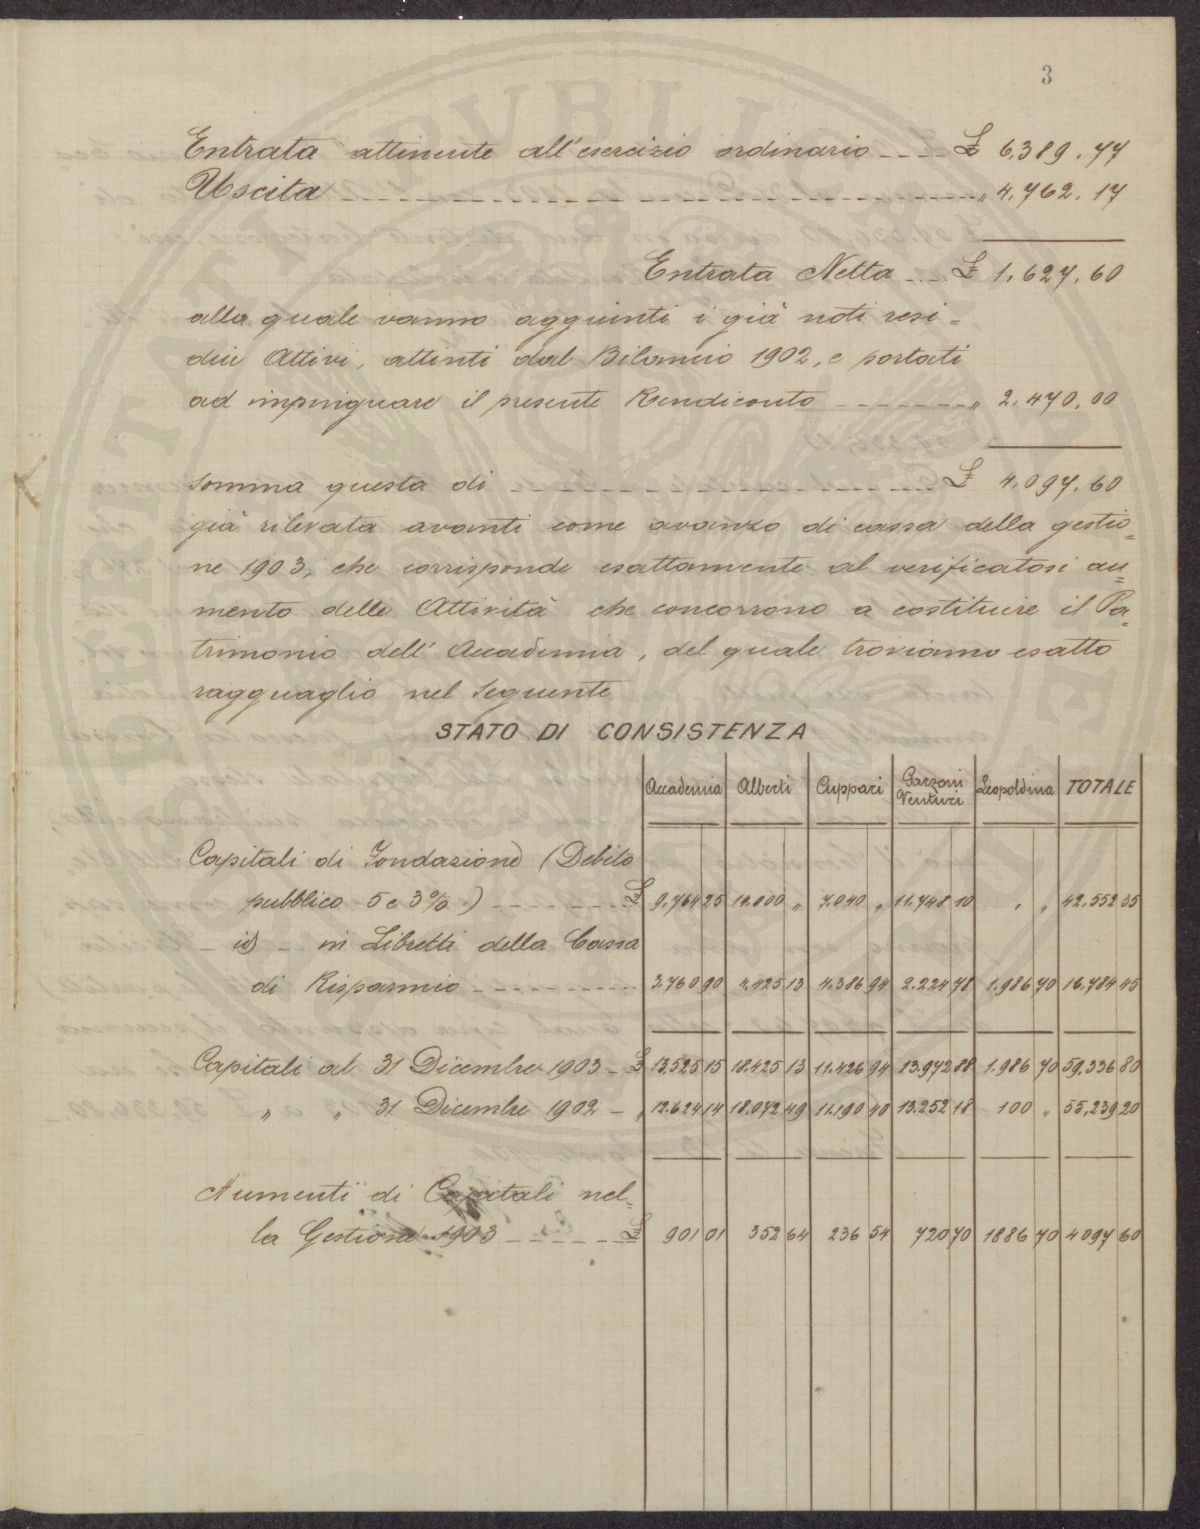 3
Entrata attinente all'esercizio ordinario ---- £ 6.389.77
Uscita ---- „ 4.762.17
Entrata Netta ---- £ 1.627.60
alla quale vanno aggiunti i già noti resi=
dui Attivi, attinti dal Bilancio 1902, e portati
ad impinguare il presente Rendiconto ---- „ 2.470.00
somma questa di ---- £ 4.097.60
già rilevata avanti come avanzo di cassa della gestio=
ne 1903, che corrisponde esattamente al verificatosi au=
mento delle Attività che concorrono a costituire il Pa=
trimonio dell'Accademia, del quale troviamo esatto
ragguaglio nel seguente
STATO DI CONSISTENZA
Accademia Alberti Cuppari Garzoni Venturi Leopoldina TOTALE
Capitali di Fondazione (Debito
pubblico 5 e 3%) ---- £ 9.764 25 14.000 „ 7.040 „ 11.748 10 „ „ 42.552 35
- id - in Libretti della Cassa
di Risparmio ---- 3.760 90 4.425 13 4.386 94 2.224 78 1.986 70 16.784 45
Capitali al 31 Dicembre 1903 - £ 13.525 15 18.425 13 11.426 94 13.972 88 1.986 70 59.336 80
„ „ 31 Dicembre 1902 - „ 12.624 14 18.072 49 11.190 40 13.252 18 100 „ 55.239 20
Aumenti di Capitali nel=
la Gestione 1903 ---- £ 901 01 352 64 236 54 720 70 1886 70 4097 60